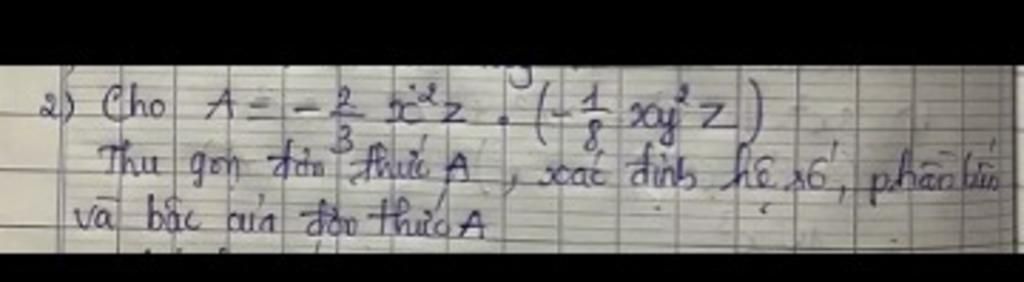 2) Cho A = - 2/3 x²z . (- 1/8 xy² z)
Thu gọn đơn thức A, xác định hệ số, phần biến
và bậc của đơn thức A